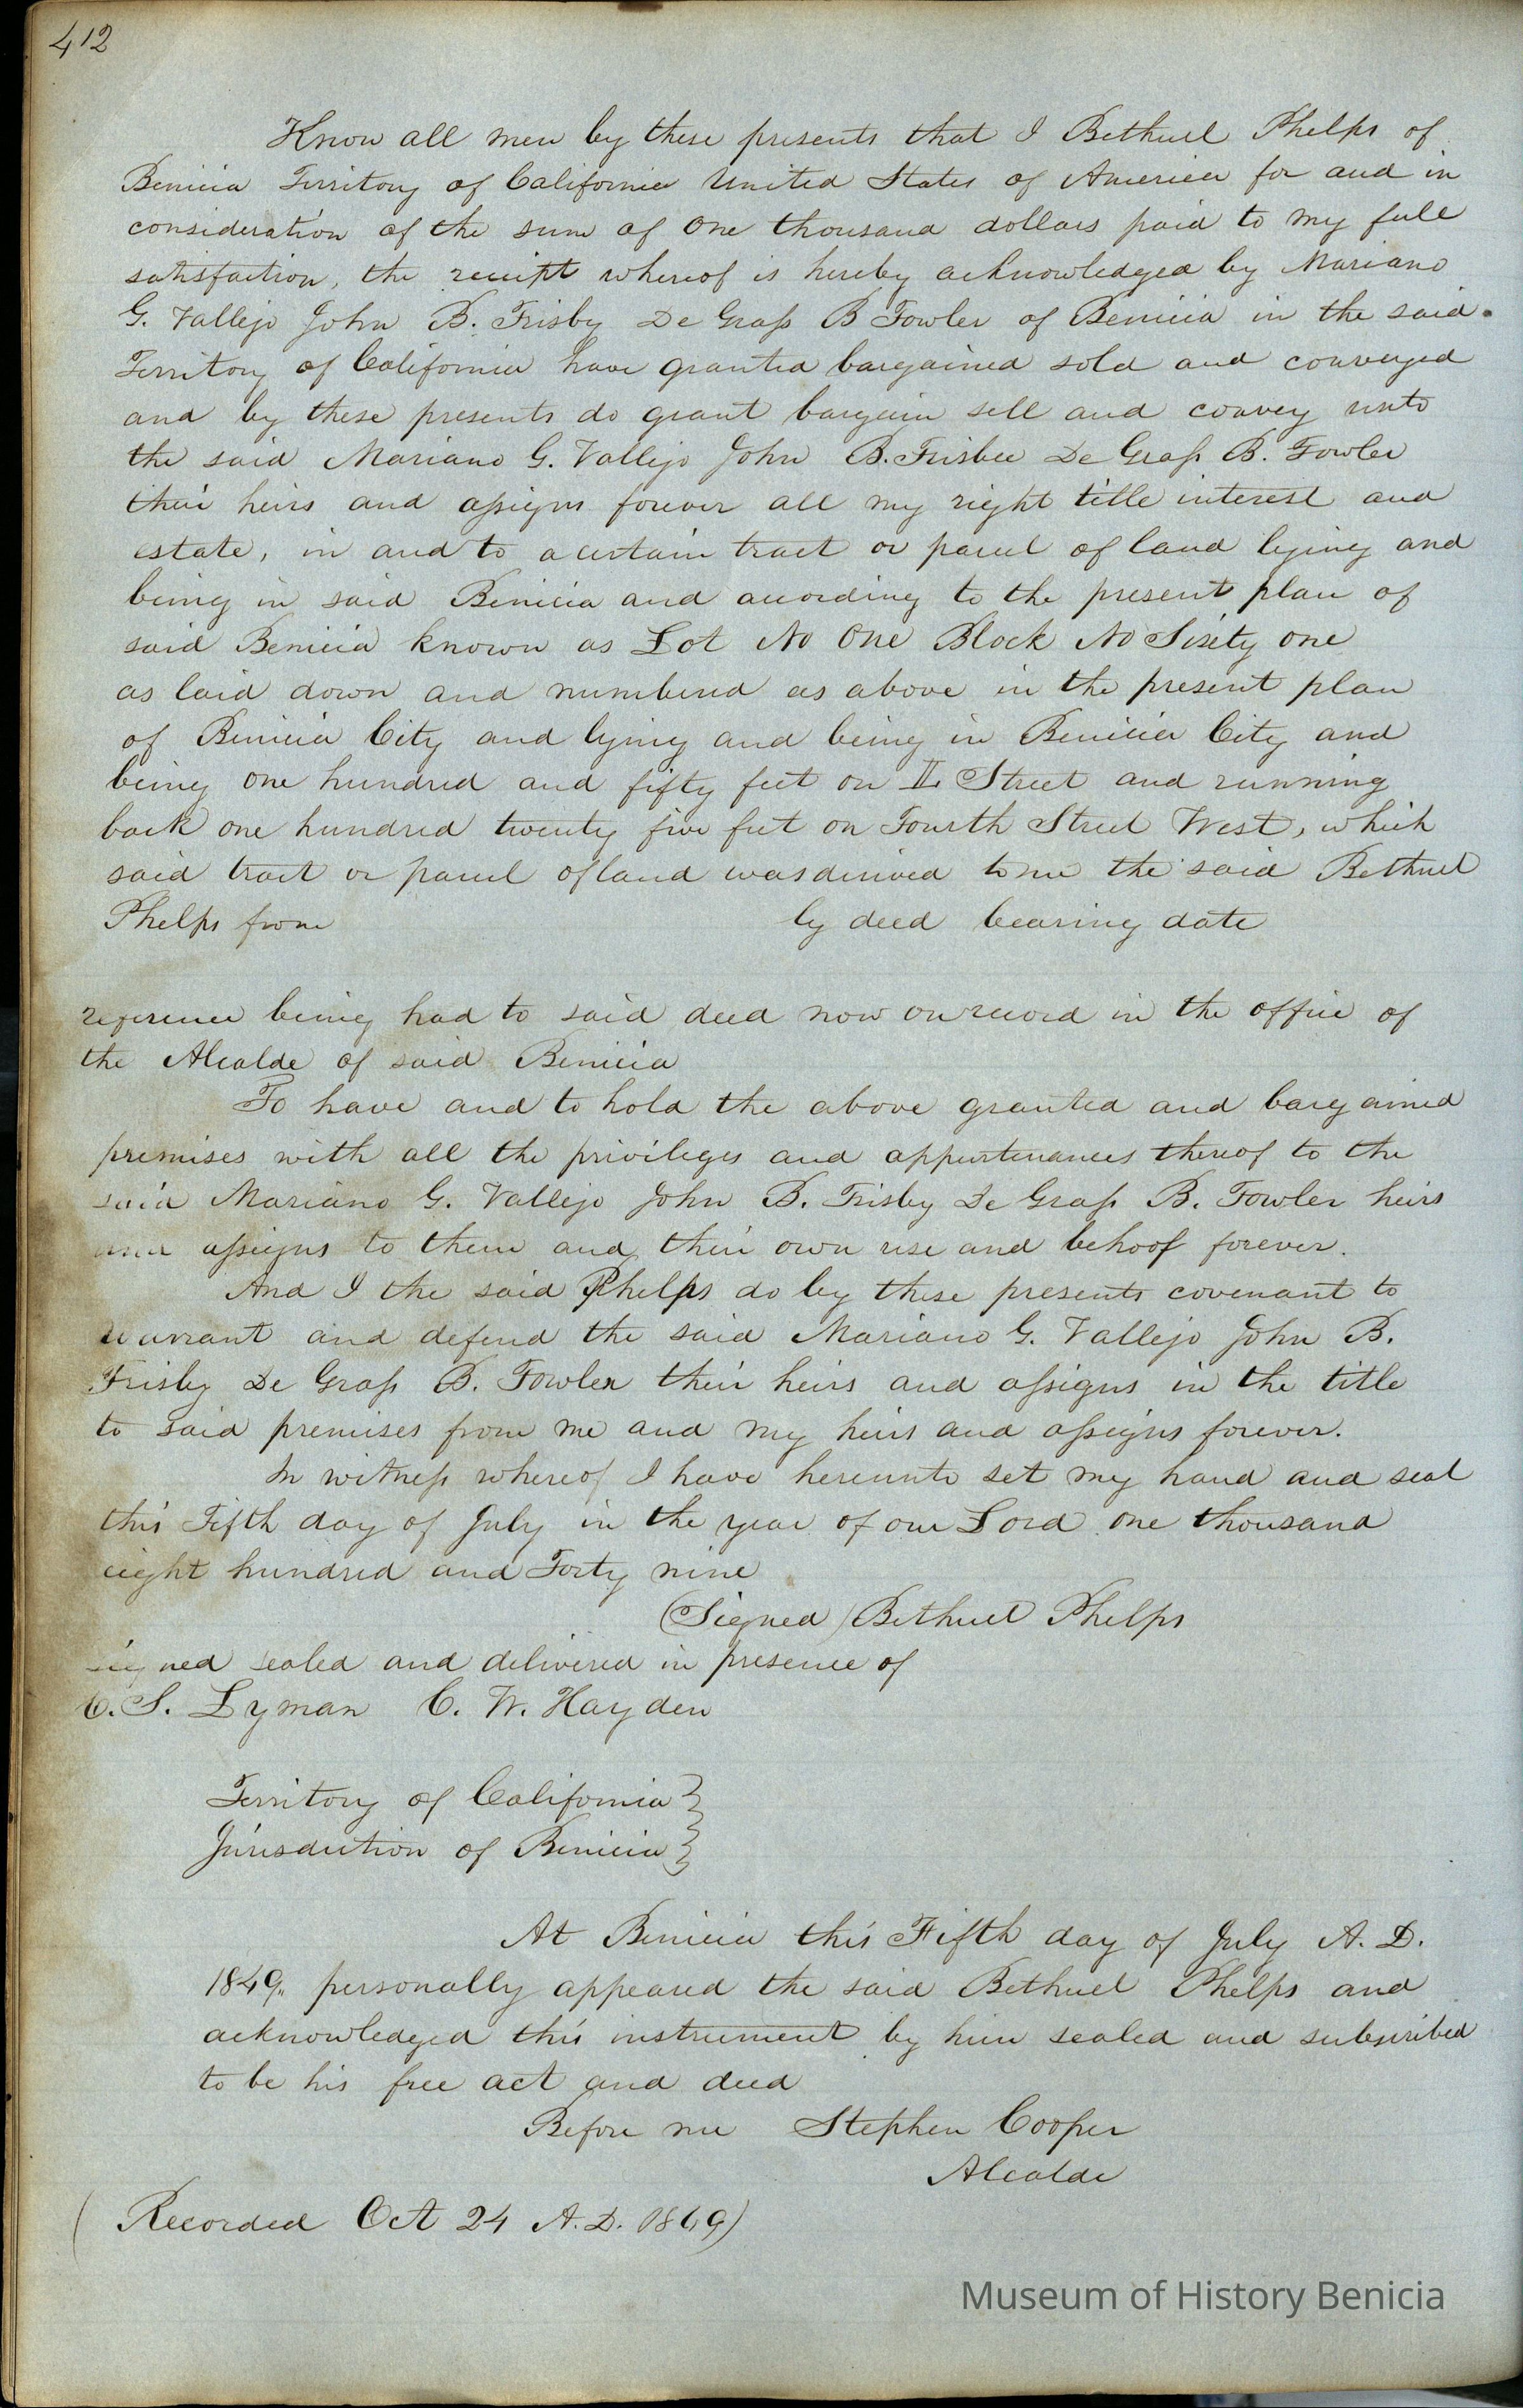 412
Know all men by these presents that I Bethuel Phelps of
Benicia Territory of California United States of America for and in
consideration of the sum of One thousand dollars paid to my full
satisfaction, the receipt whereof is hereby acknowledged by Mariano
G. Vallejo John B. Frisby De Grass B Fowler of Benicia in the said
Territory of California have granted bargained sold and conveyed
and by these presents do grant bargain sell and convey unto
the said Mariano G. Vallejo John B. Frisbee De Grass B. Fowler
their heirs and assigns forever all my right title interest and
estate, in and to a certain tract or parcel of land lying and
being in said Benicia and according to the present plan of
said Benicia known as Lot No One Block No Sixty one
as laid down and numbered as above in the present plan
of Benicia City and lying and being in Benicia City and
being one hundred and fifty feet on Street and running
back one hundred twenty five feet on Fourth Street West, which
said tract or parcel of land was derived to me the said Bethuel
Phelps from by deed bearing date
reference being had to said deed now on record in the office of
the Alcalde of said Benicia
To have and to hold the above granted and bargained
premises with all the privileges and appurtenances thereof to the
said Mariano G. Vallejo John B. Frisby De Grass B. Fowler heirs
and assigns to them and their own use and behoof forever.
And I the said Phelps do by these presents covenant to
warrant and defend the said Mariano G. Vallejo John B.
Frisby De Grass B. Fowler their heirs and assigns in the title
to said premises from me and my heirs and assigns forever.
In witness whereof I have hereunto set my hand and seal
this Fifth day of July in the year of our Lord one thousand
eight hundred and Forty nine
(Signed) Bethuel Phelps
signed sealed and delivered in presence of
C. S. Lyman C. W. Hayden
Territory of California }
Jurisdiction of Benicia }
At Benicia this Fifth day of July A. D.
1849 personally appeared the said Bethuel Phelps and
acknowledged this instrument by him sealed and subscribed
to be his free act and deed
Before me Stephen Cooper
Alcalde
(Recorded Oct 24 A. D. 1849)
Museum of History Benicia